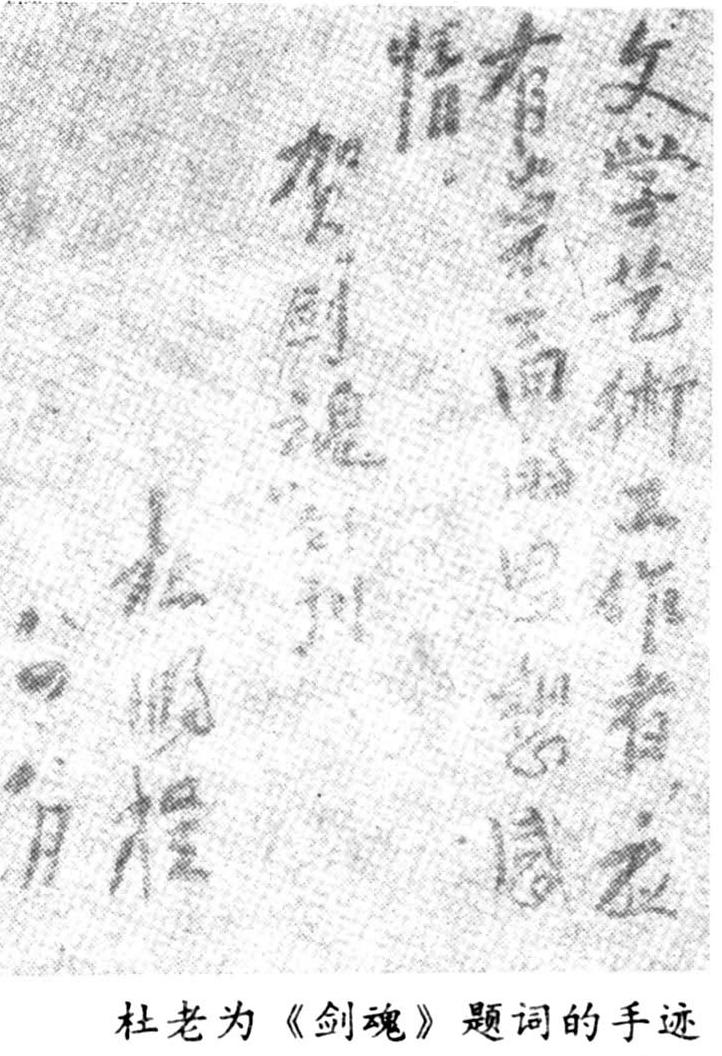 文学艺術工作者,应
有崇高的思想感
情.
贺剑魂创刊
杜鹏程
八四.八月
杜老为《剑魂》题词的手迹